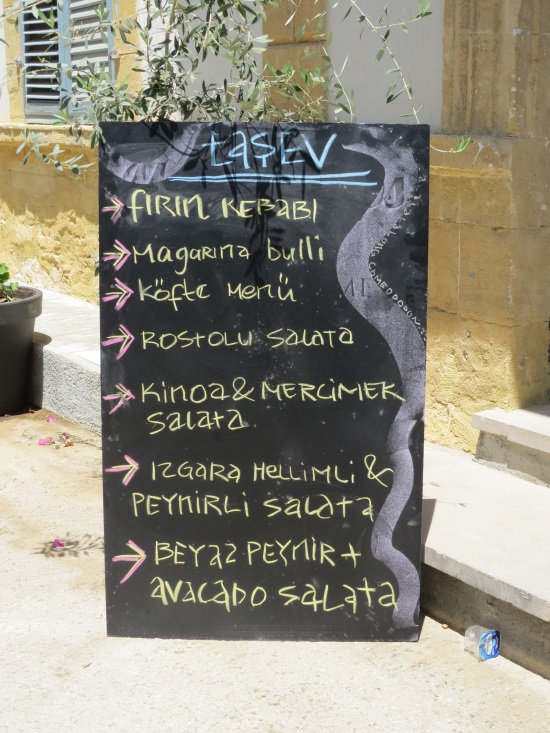 taşev
fIRIn KEBABI
Magarına bulli
Köfte Menü
ROStOLU SALAtA
Kinoa & MERCİMEK
SALAtA
IZGARA HELLİMLİ &
PEYNİRLİ SALAtA
BEYAZ PEYNİR +
AVACADO SALAtA